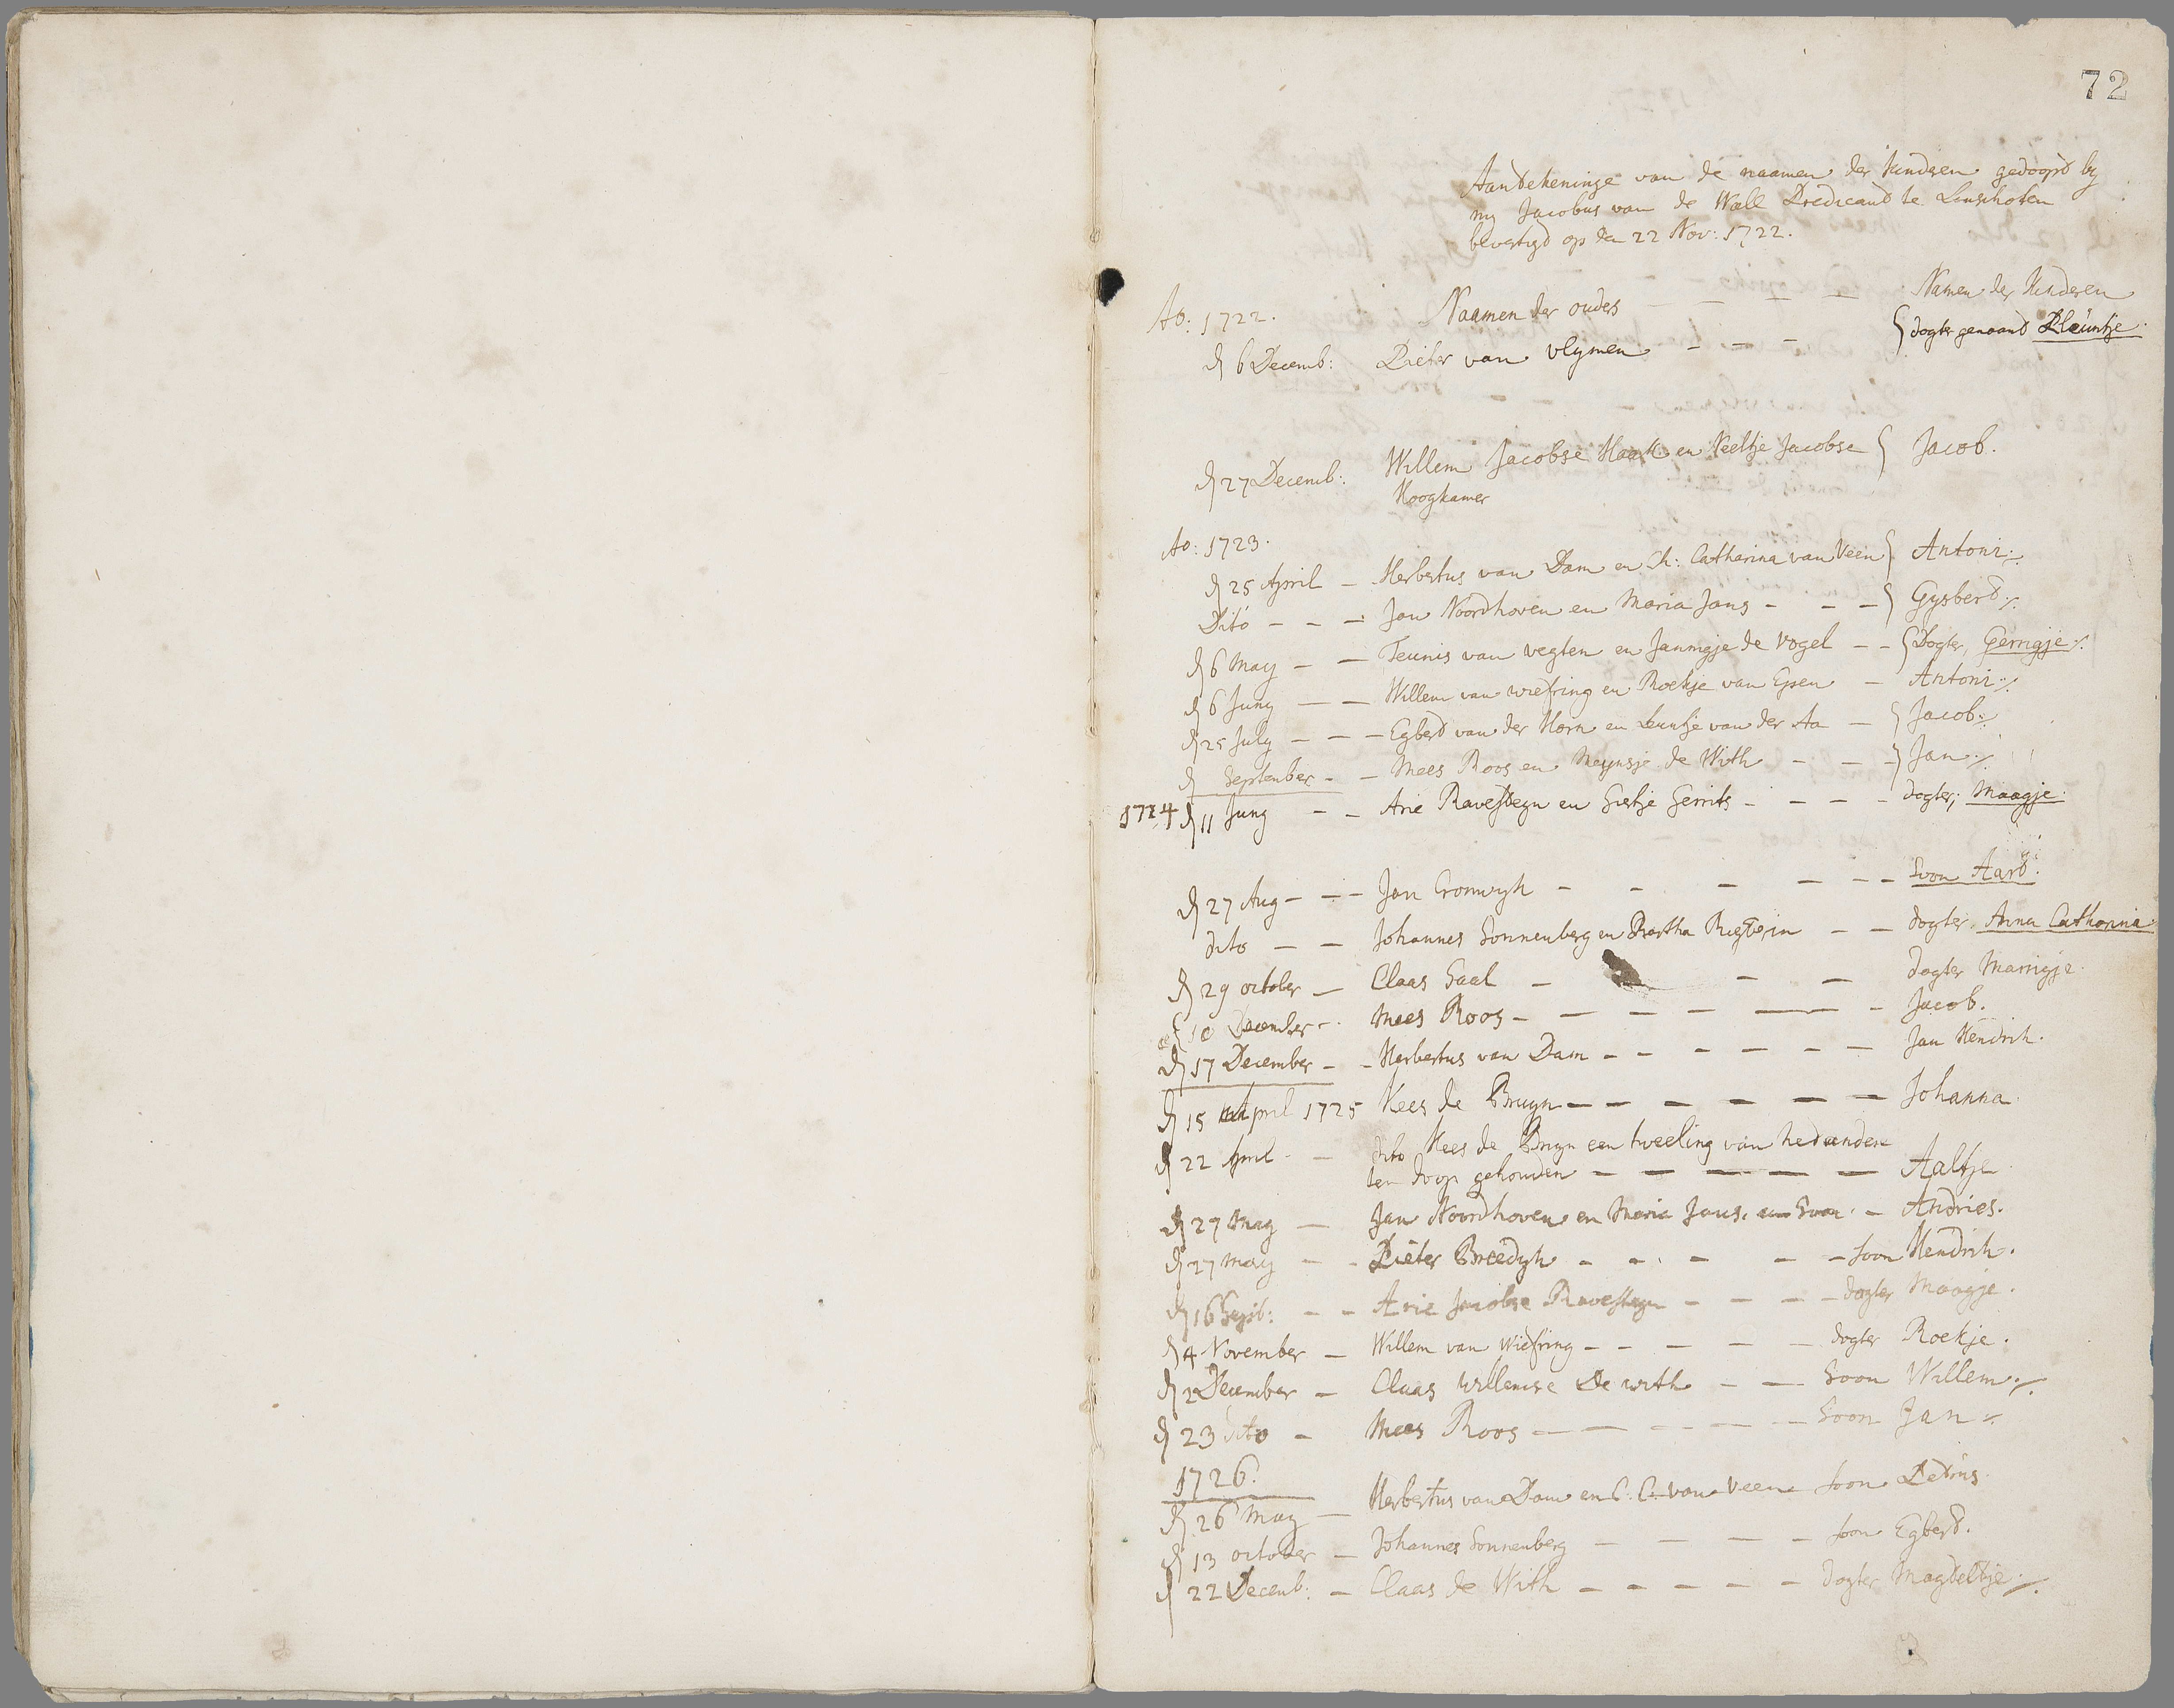 72
Aantekeninge van de naamen der kinderen gedoopt by
my Jacobus van de Wall Predicant te Linschoten
bevestigd op den 22 Nov: 1722.
Ao: 1722. Naamen der ouders — — — Namen der Kinderen
d 6 Decemb: Pieter van vlymen - - - { dogter genaamt Pleuntje
d 27 Decemb: Willem Jacobse Haak en Neeltje Jacobse { Jacob.
Hoogkamer
Ao: 1723.
d 25 April — Herbertus van Dam en Ch: Catharina van Veen } Antoni
Dito — — — Jan Noordhoven en Maria Jans - - - } Gysbert
d 6 May — — Teunis van vegten en Jannigje de Vogel - - { Dogter, Gerrigje
d 6 Juny — — Willem van wiefring en Roekje van Epen — Antoni
d 25 July — — — Egbert van der Horn en Leuntje van der Aa — } Jacob
d September - — Mees Roos en Meynsje de With - - - } Jan
1724 d 11 Juny - — Arie Ravesteyn en Sietje Gerrits - - - - dogter, Maagje
d 27 Aug - — - Jan Cromwyk - - - - - - Soon Aart.
dito — — Johannes Sonnenberg en Martha - — dogter Anna Catharina
d 29 october — Claas Gaal - - - dogter Marrigje.
10 December - Mees Roos - — — — — - Jacob.
d 17 December - - Herbertus van Dam - - - - - — Jan Hendrik.
d 15 April 1725 Kees de Bruyn — — — — — — Johanna
d 22 April - — dito Kees de Bruyn een tweeling van heden
ten doop gehouden — — — — — Aaltje.
d 27 May — Jan Noordhoven en Maria Jans, een Soon - Andries.
d 27 May — - Pieter Breedyk - - - - - soon Hendrik.
d 16 Sept: - - Arie Jacobse Ravesteyn - — - - dogter Maagje.
d 4 November — Willem van Wiefring - - - - — dogter Roekje.
d 2 December — Claas Willemse De with - — Soon Willem
d 23 dito - Mees Roos — — — — — Soon Jan
1726.
d 26 May — Herbertus van Dam en C: C. van Veen soon Petrus
d 13 october — Johannes Sonnenberg — — — - soon Egbert.
d 22 Decemb: — Claas de With - - - - - dogter Magteltje